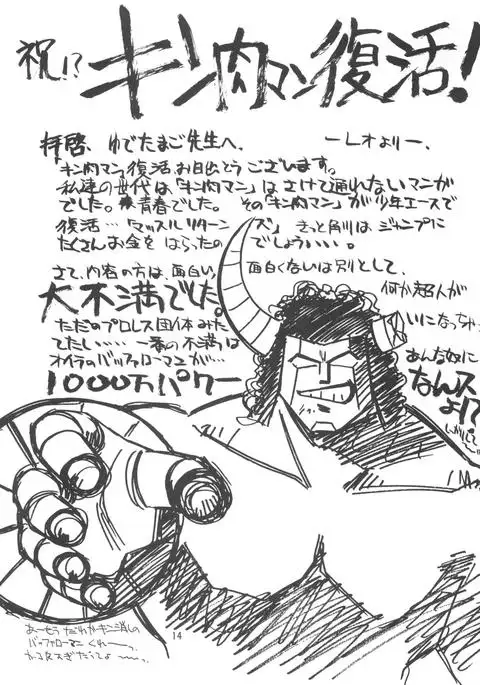 祝!? キン肉マン復活!
拝啓、ゆでたまご先生へ、 ーLオよりー、
「キン肉マン」復活お目出とうございます。
私達の世代は、「キン肉マン」はさけて通れないマンガ
でした。青春でした。その「キン肉マン」が少年エースで
復活…「マッスルリターンズ」きっと角川はジャンプに
たくさんお金をはらったのでしょういい。
さて、内容の方は、面白い面白くないは別として、
大不満でした。何か超人が
ただのプロレス団体みたいになっちゃっ
てたしい……一番の不満は あんな奴に
オイラのバッファローマンが… なんス
1000万パワー よィて
あーもうだれかキン消しの
バッファローマンくれー
14